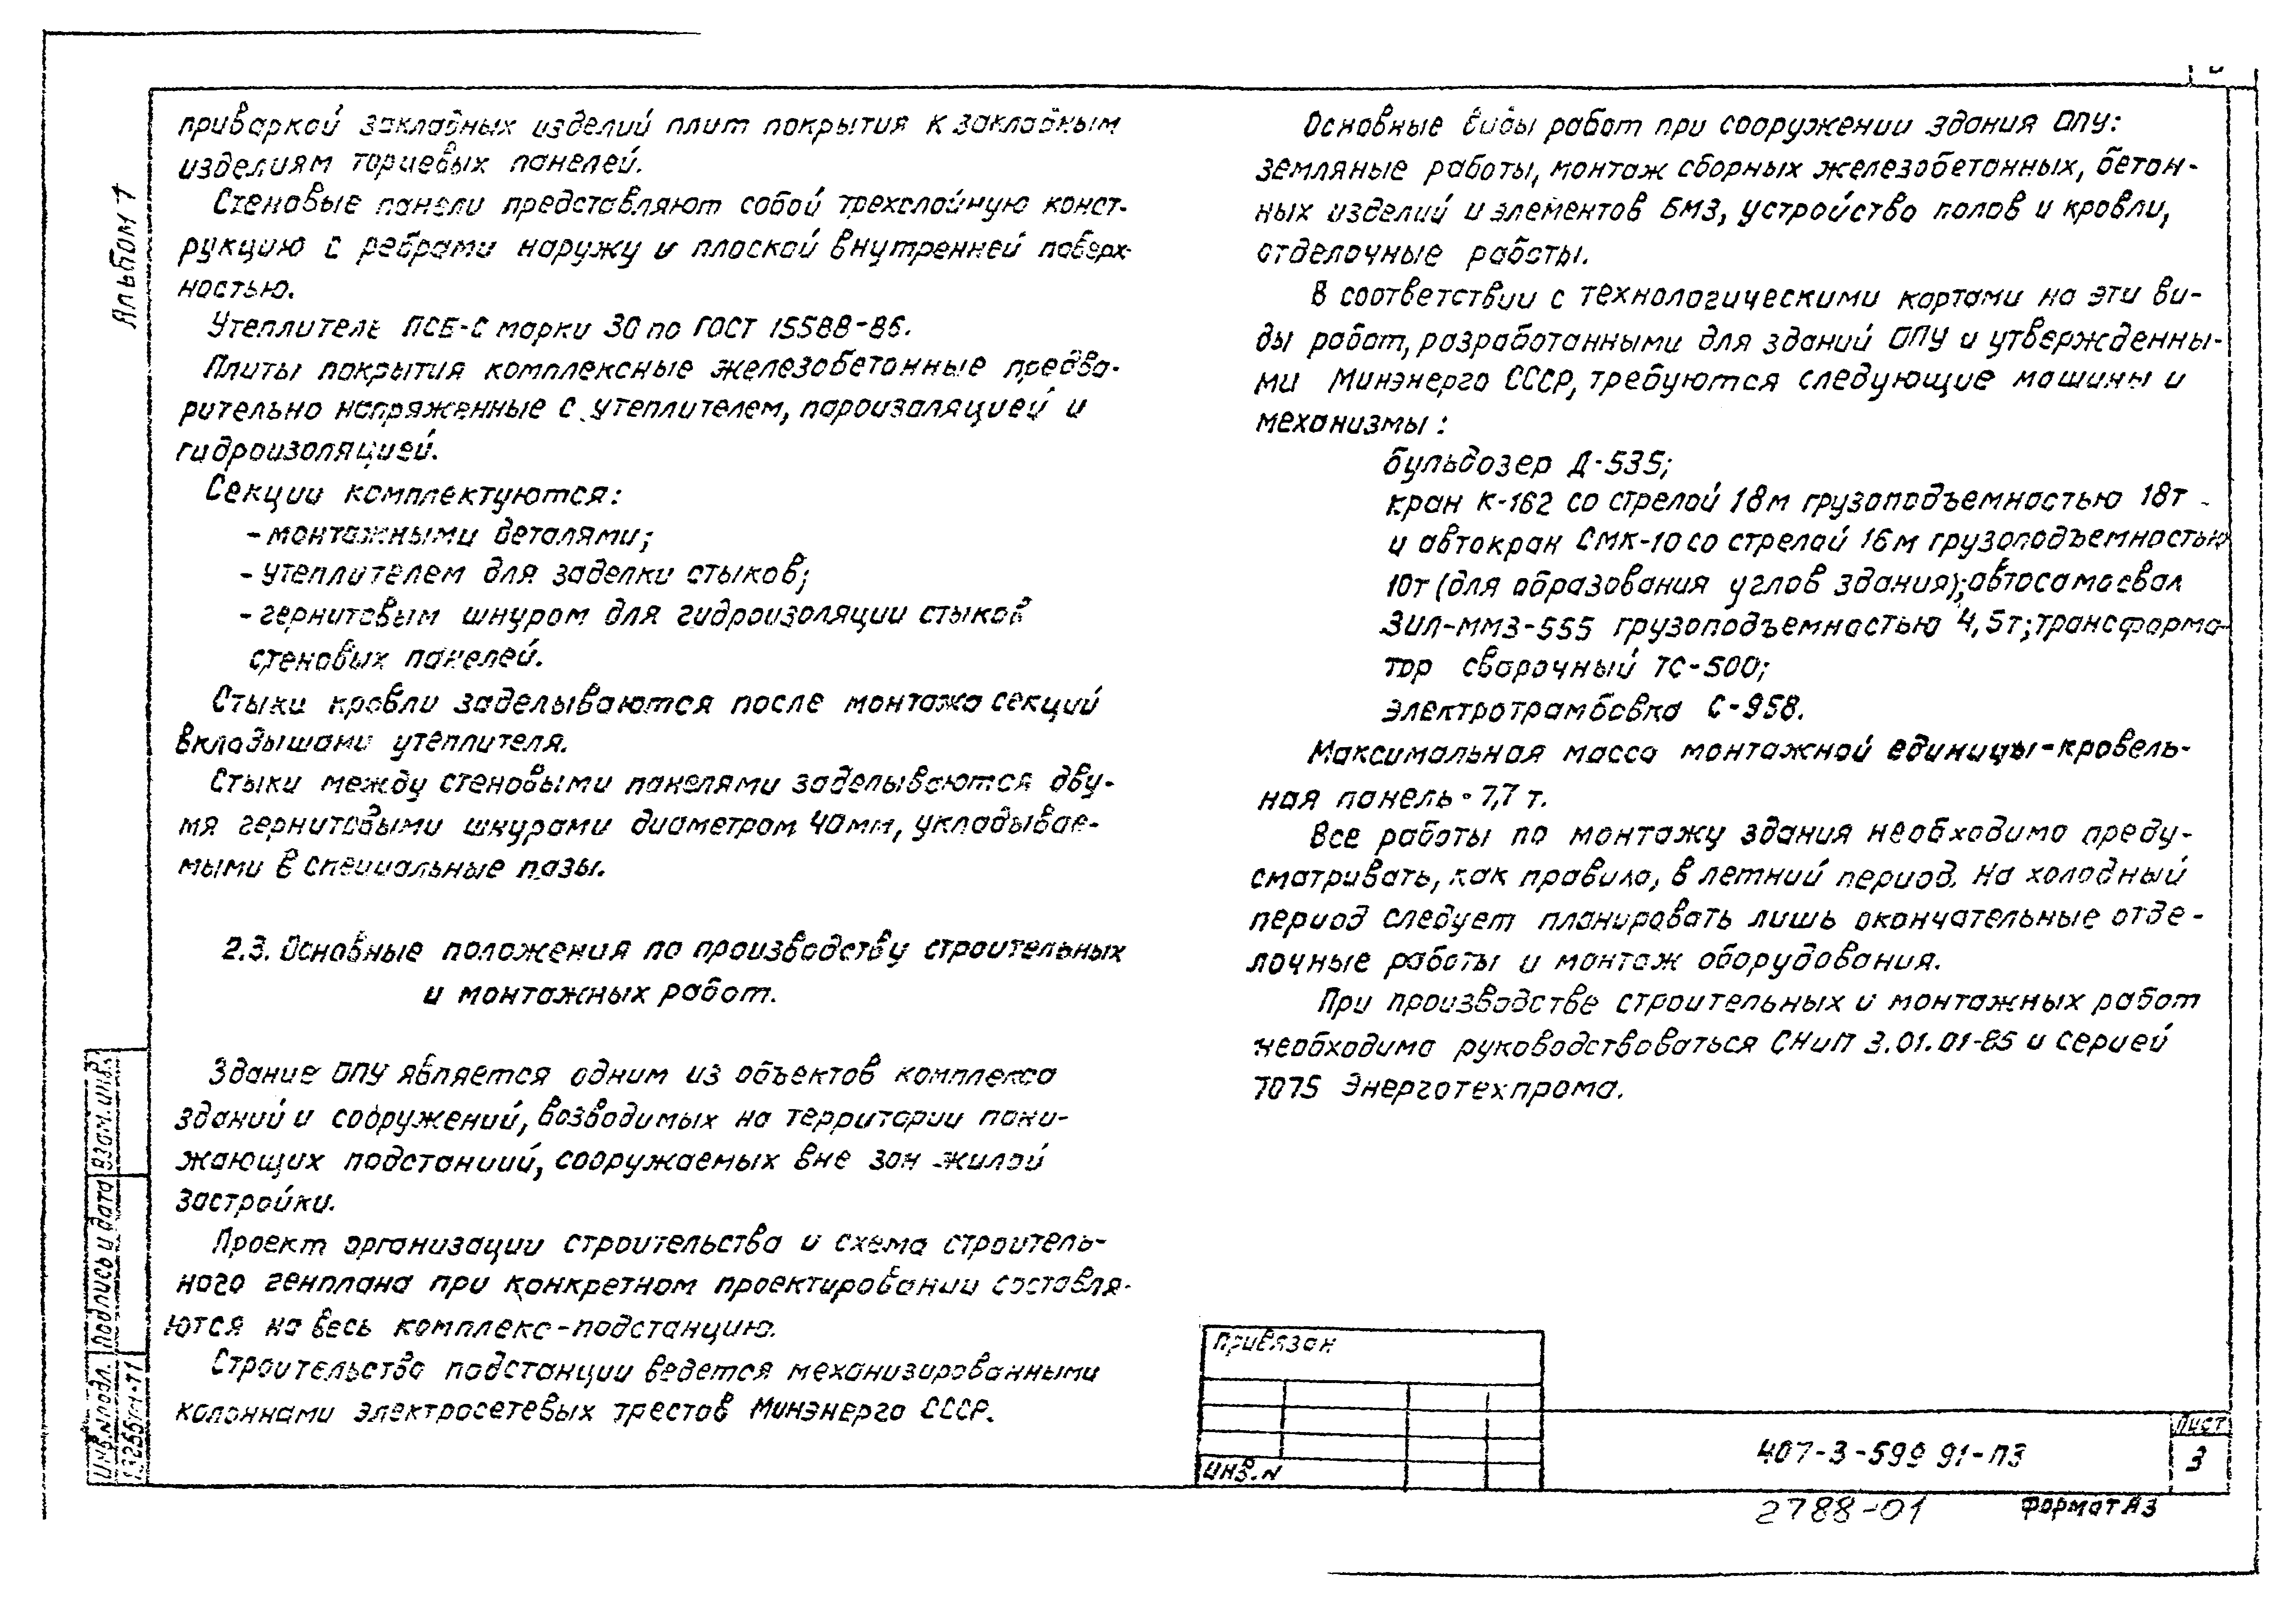 Альбом 1
приваркой закладных изделий плит покрытия к закладным
изделиям торцевых панелей.
Стеновые панели представляют собой трехслойную конст-
рукцию с ребрами наружу и плоской внутренней поверх-
ностью.
Утеплитель ПСБ-С марки 30 по ГОСТ 15588-86.
Плиты покрытия комплексные железобетонные предва-
рительно напряженные с утеплителем, пароизоляцией и
гидроизоляцией.
Секции комплектуются:
- монтажными деталями;
- утеплителем для заделки стыков;
- гернитовым шнуром для гидроизоляции стыков
стеновых панелей.
Стыки кровли заделываются после монтажа секций
вкладышами утеплителя.
Стыки между стеновыми панелями заделываются дву-
мя гернитовыми шнурами диаметром 40мм, укладывае-
мыми в специальные пазы.
2.3. Основные положения по производству строительных
и монтажных работ.
Здание ОПУ является одним из объектов комплекса
зданий и сооружений, возводимых на территории пони-
жающих подстанций, сооружаемых вне зон жилой
застройки.
Проект организации строительства и схема строитель-
ного генплана при конкретном проектировании составля-
ются на весь комплекс-подстанцию.
Строительство подстанции ведется механизированными
колоннами электросетевых трестов Минэнерго СССР.
Основные виды работ при сооружении здания ОПУ:
земляные работы, монтаж сборных железобетонных, бетон-
ных изделий и элементов БМЗ, устройство полов и кровли,
отделочные работы.
В соответствии с технологическими картами на эти ви-
ды работ, разработанными для зданий ОПУ и утвержденны-
ми Минэнерго СССР, требуются следующие машины и
механизмы:
бульдозер Д-535;
кран К-162 со стрелой 18м грузоподъемностью 18т
и автокран СМК-10 со стрелой 16м грузоподъемностью
10т (для образования углов здания); автосамосвал
ЗИЛ-ММЗ-555 грузоподъемностью 4,5т; трансформа-
тор сварочный ТС-500;
электротрамбовка С-958.
Максимальная масса монтажной единицы-кровель-
ная панель - 7,7 т.
Все работы по монтажу здания необходимо преду-
сматривать, как правило, в летний период. На холодный
период следует планировать лишь окончательные отде-
лочные работы и монтаж оборудования.
При производстве строительных и монтажных работ
необходимо руководствоваться СНиП 3.01.01-85 и серией
7075 Энерготехпрома.
Привязан
Инв.N
407-3-599 91-ПЗ
Лист
3
2788-01
Формат А3
Взам. инв.
Подпись и дата
Инв.N подл.